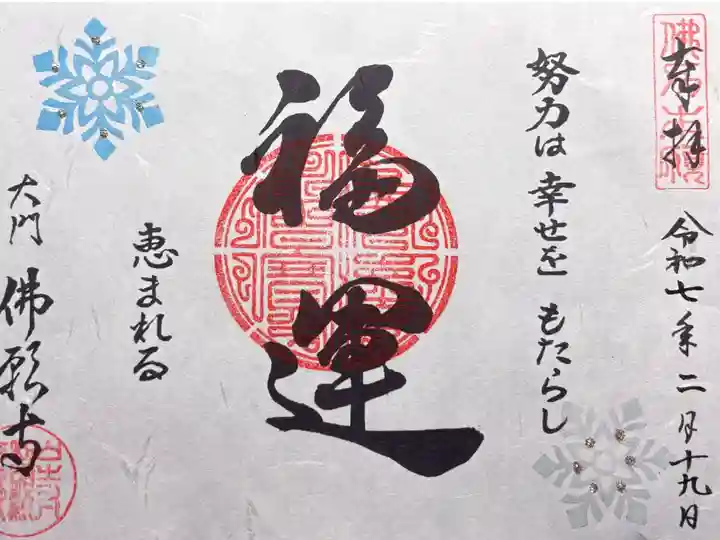 奉拝
令和七年二月十九日
努力は幸せを もたらし
福運
恵まれる
大門 佛願寺